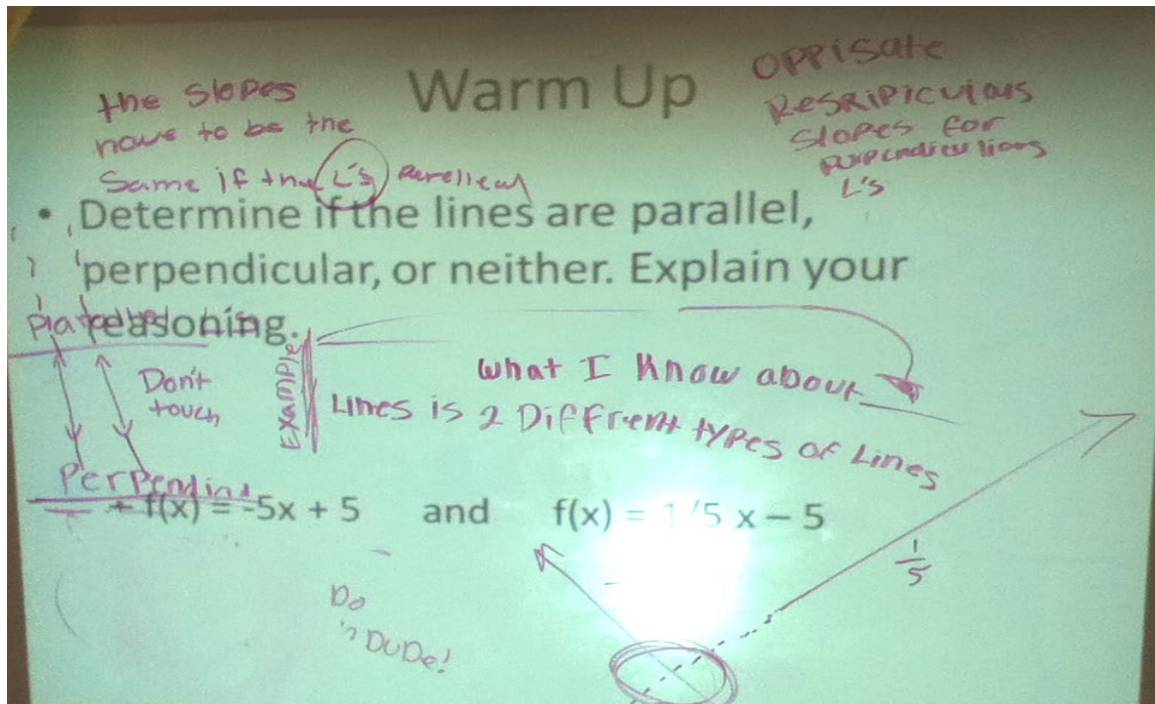 Warm Up
the slopes
have to be the
Same if the L's parellem
OPPisate
ResRipiculous
slopes for
L's
• Determine if the lines are parallel,
perpendicular, or neither. Explain your
reasoning.
Don't
touch
Example
What I Know about
Lines is 2 Diffrent types of Lines
Perpendind
f(x) = -5x + 5 and f(x) = 1/5 x – 5
1/5
Do
DUDe!